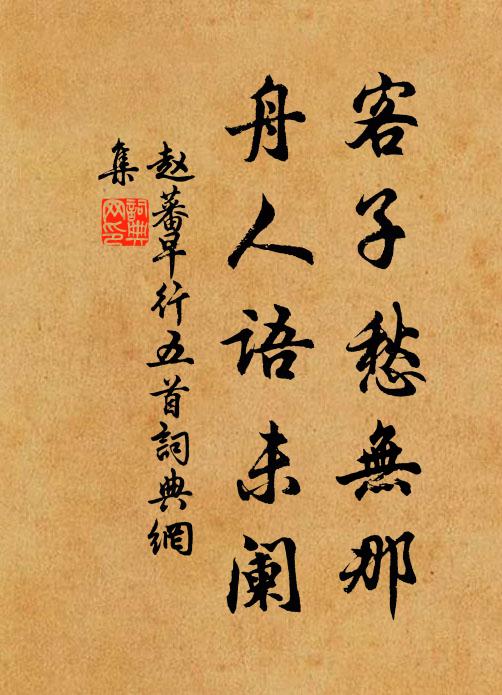 客子愁無那
舟人語未阑
赵蕃早行五首詞典網
集
詞典
网印